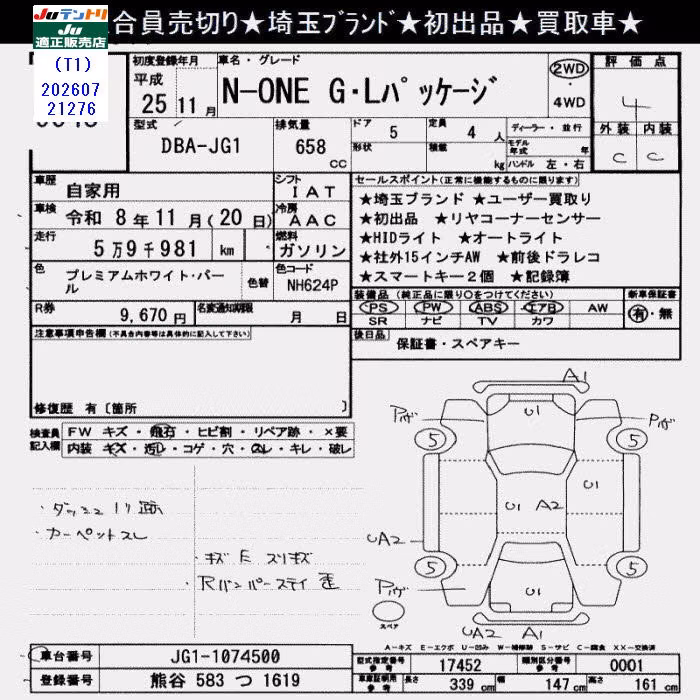 Juテントリ
Ju
適正販売店
(T1)
202607
21276
合員売切り★埼玉ﾌﾞﾗﾝﾄﾞ★初出品★買取車★
初度登録年月
平成
25年11月
車名・グレード
N-ONE G・Lﾊﾟｯｹｰｼﾞ
2WD
・
4WD
評価点
4
外装 内装
C C
型式
DBA-JG1
排気量
658 cc
ドア 5
形状
定員 4 人
積載 kg
ディーラー・並行
モデル年式 年
ハンドル 左・右
車歴 自家用
シフト IAT
車検 令和 8年11月(20日)
冷房 AAC
走行 5万9千981 km
燃料 ガソリン
色 プレミアムホワイト・パール
色替
色コード NH624P
R券 9,670円
名変通知期限 月 日
セールスポイント(正常に機能するものに限ります)
★埼玉ブランド ★ユーザー買取り
★初出品 ★リヤコーナーセンサー
★HIDライト ★オートライト
★社外15インチAW ★前後ドラレコ
★スマートキー2個 ★記録簿
装備品(純正品に限り○をつけてください)
PS PW ABS エアB AW
SR ナビ TV カワ
新車保証書
有・無
後日品 保証書・スペアキー
注意事項申告欄(不具合内容等は具体的に記入して下さい)
修復歴 有〔箇所 〕
検査員記入欄
FW キズ・飛石・ヒビ割・リペア跡・×要
内装 キズ・汚レ・コゲ・穴・スレ・キレ・破レ
・ダッシュ ノリ跡
・カーペットスレ
・キズ E スリキズ
・Rバンパーステイ歪
A1
U1
5
5
U1
A2
U1
UA2
5
5
U1
UA2 A1
スペア
A-キズ E-エクボ U-凹み W-補修跡 S-サビ C-腐食 XX-交換済
車台番号 JG1-1074500
登録番号 熊谷 583 つ 1619
型式指定番号 参考 17452
類別区分番号 参考 0001
車庫証明用 参考 長さ 339 cm 幅 147 cm 高さ 161 cm